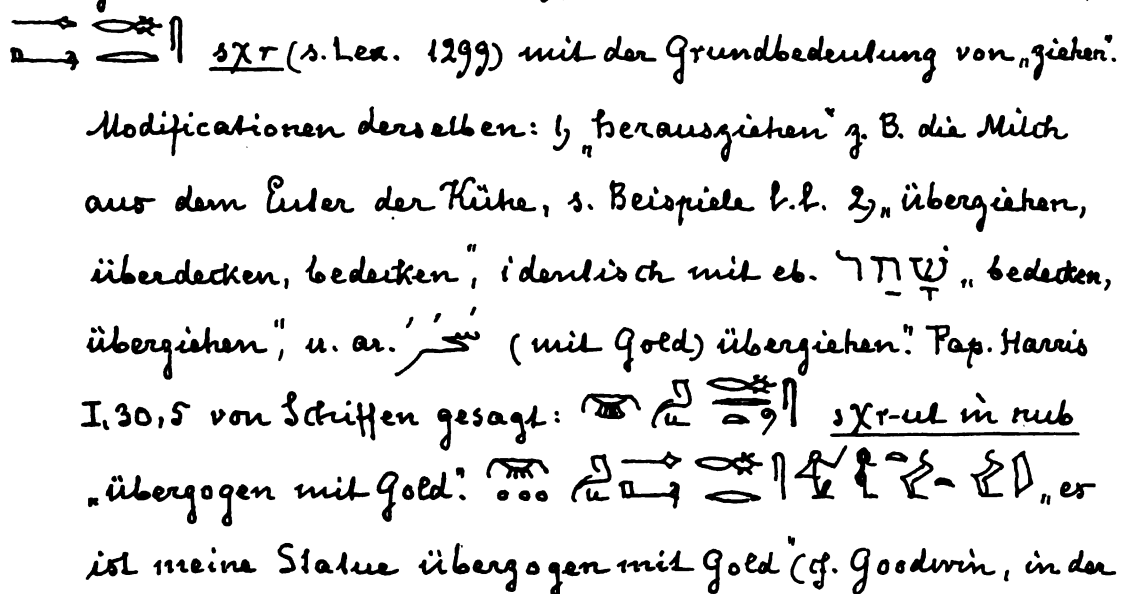 sχr (s. Lex. 1299) mit der Grundbedeutung von „ziehen“.
Modificationen derselben: 1, „herausziehen“ z. B. die Milch
aus dem Euter der Kühe, s. Beispiele l. l. 2, „überziehen,
überdecken, bedecken“, identisch mit eb. שָׁחַר „bedecken,
überziehen“, u. ar. (mit Gold) überziehen“. Pap. Harris
I, 30, 5 von Schiffen gesagt: sχr-ut m nub
„überzogen mit Gold“. „es
ist meine Statue überzogen mit Gold“ (cf. Goodwin, in der